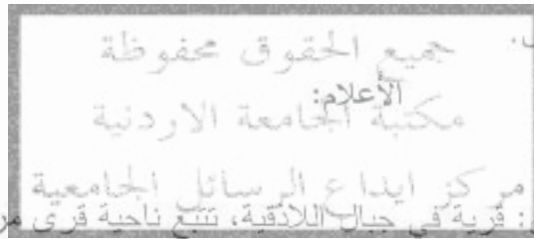 جميع الحقوق محفوظة
الأعلام:
مكتبة الجامعة الاردنية
مركز ايداع الرسائل الجامعية
: قرية في جبال اللاذقية، تتبع ناحية قرى